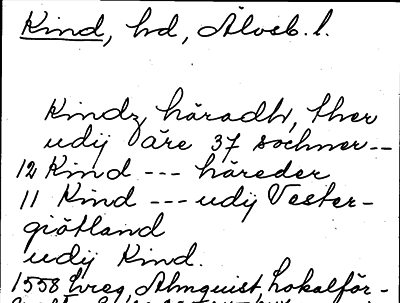 Kind, hd, Älvsb. l.
Kindz häradh, ther
udij äre 37 sochner--
12 Kind --- häreder
11 Kind --- udij Vester-
giötland
udij Kind.
1558 Lreg, Almquist, Lokalför-